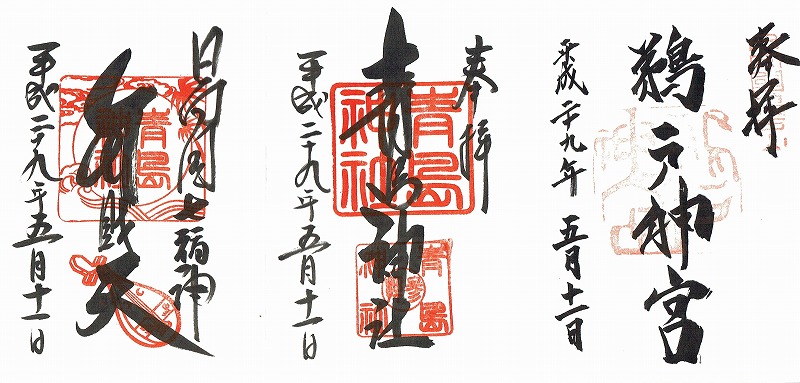 奉拝
鵜戸神宮
平成二十九年 五月十一日
奉拝
青島神社
平成二十九年五月十一日
青島
神社
青島
神社
日向之国七福神
弁財天
平成二十九年五月十一日
青島
神社